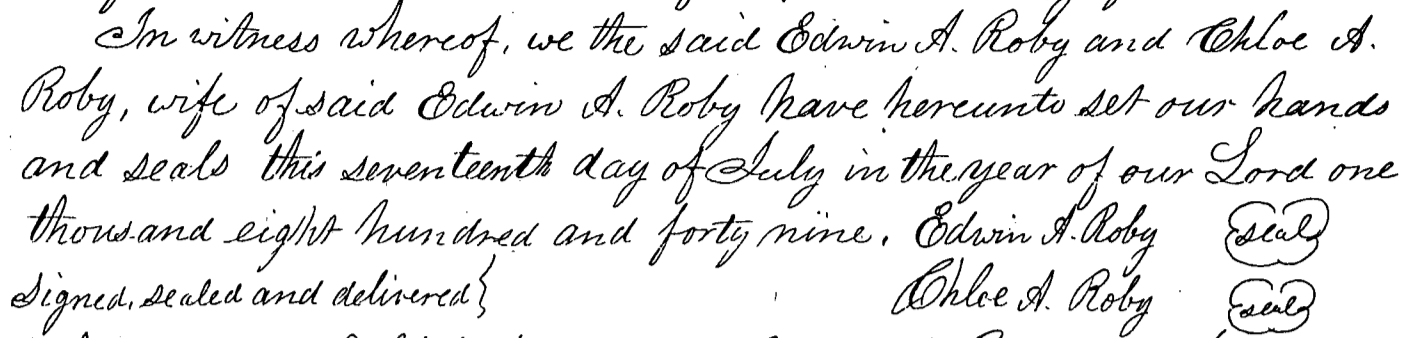 In witness whereof, we the said Edwin A. Roby and Chloe A.
Roby, wife of said Edwin A. Roby have hereunto set our hands
and seals this seventeenth day of July in the year of our Lord one
thousand eight hundred and forty nine. Edwin A. Roby seal
Signed, sealed and delivered} Chloe A. Roby seal